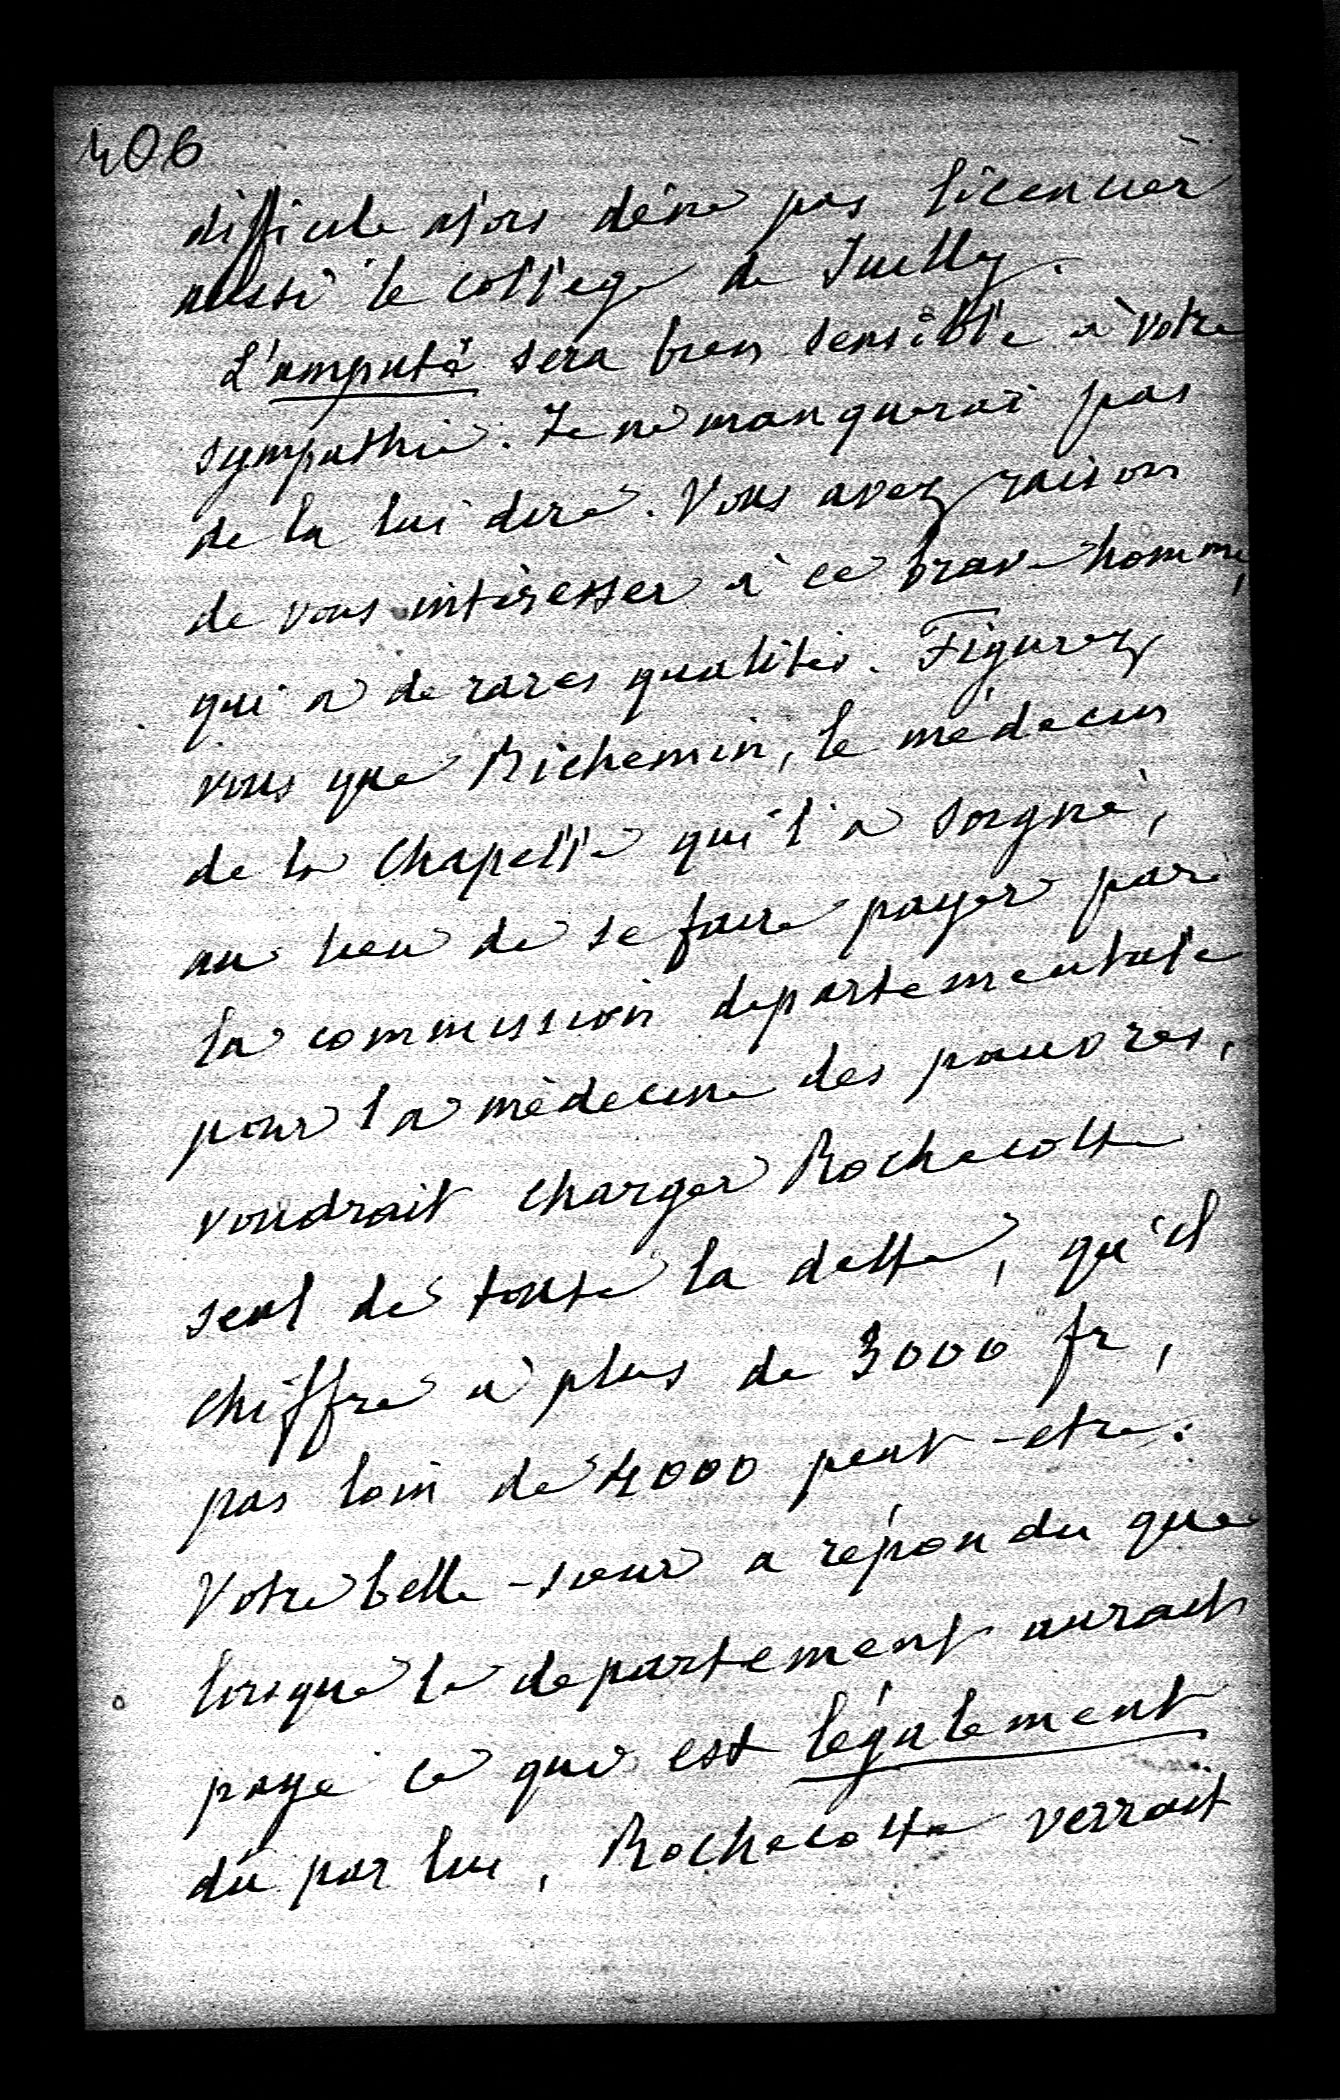 406
difficile alors de ne pas licencier
aussi le collège de Juilly.
L'amputé sera bien sensible à votre
sympathie. Je ne manquerai pas
de la lui dire. Vous avez raison
de vous intéresser à ce brave homme,
qui a de rares qualités. Figurez
vous que Richemin, le médecin
de la Chapelle qui l'a soigné,
au lieu de se faire payer par
la commission départementale
pour la médecine des pauvres,
voudrait charger Rochecotte
seul de toute la dette, qu'il
chiffre à plus de 3000 fr,
pas loin de 4000 peut-etre.
Votre belle-sœur a répondu que
lorsque le departement aurait
payé ce qui est légalement
dû par lui, Rochecotte verrait